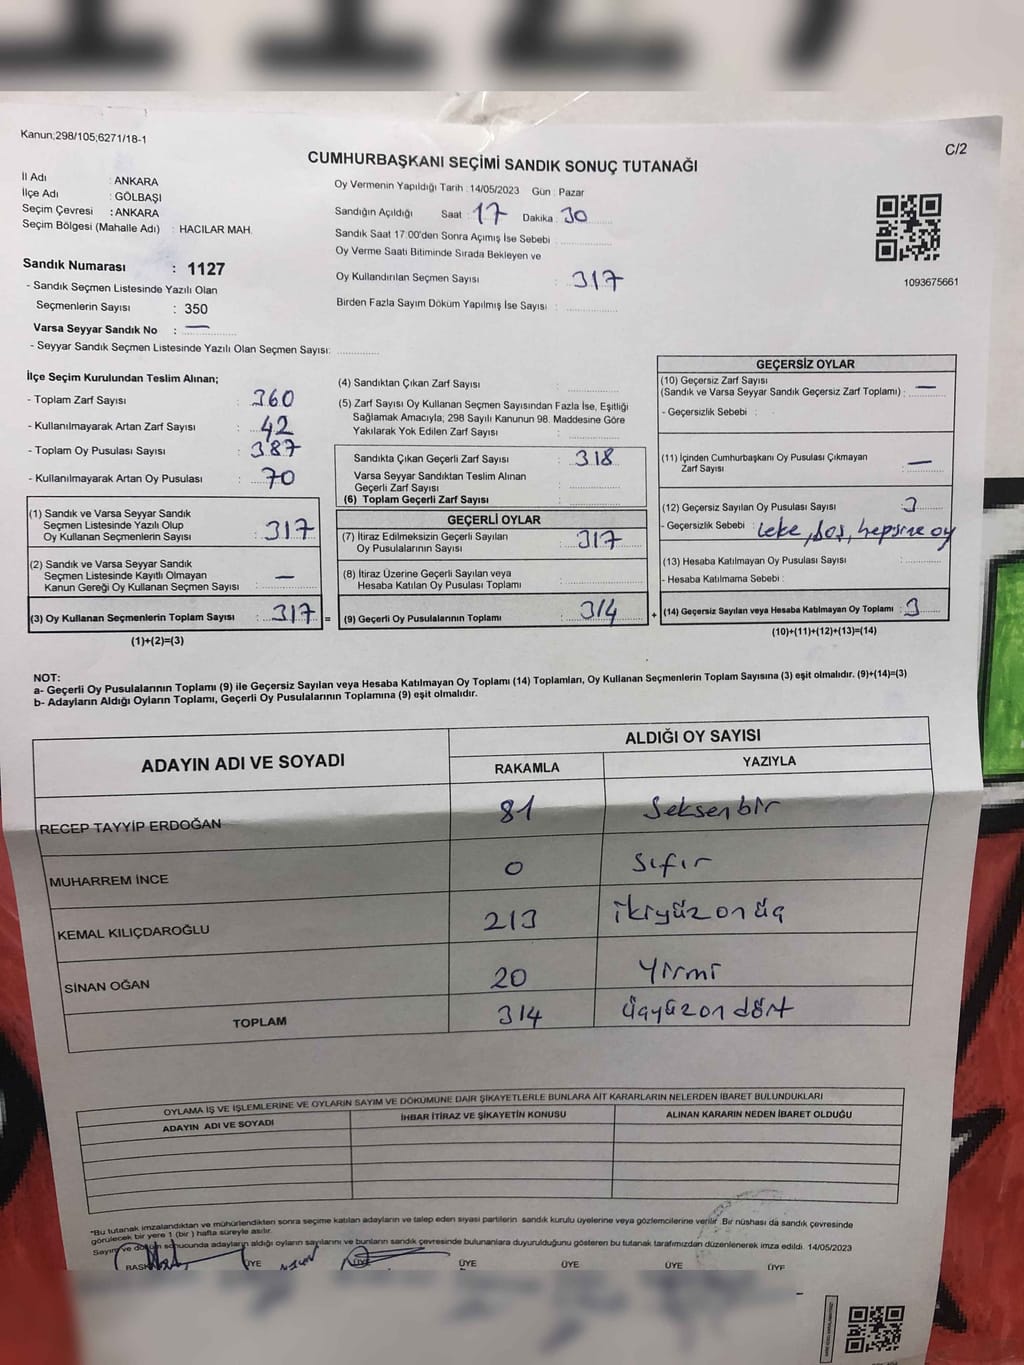 1127
Kanun;298/105;6271/18-1
C/2
CUMHURBAŞKANI SEÇİMİ SANDIK SONUÇ TUTANAĞI
İl Adı : ANKARA
İlçe Adı : GÖLBAŞI
Seçim Çevresi : ANKARA
Seçim Bölgesi (Mahalle Adı) : HACILAR MAH.
Sandık Numarası : 1127
- Sandık Seçmen Listesinde Yazılı Olan
Seçmenlerin Sayısı : 350
Varsa Seyyar Sandık No : —
- Seyyar Sandık Seçmen Listesinde Yazılı Olan Seçmen Sayısı:
Oy Vermenin Yapıldığı Tarih : 14/05/2023 Gün : Pazar
Sandığın Açıldığı Saat : 17 Dakika : 30
Sandık Saat 17:00'den Sonra Açımış İse Sebebi :
Oy Verme Saati Bitiminde Sırada Bekleyen ve
Oy Kullandırılan Seçmen Sayısı : 317
Birden Fazla Sayım Döküm Yapılmış İse Sayısı :
1093675661
İlçe Seçim Kurulundan Teslim Alınan;
- Toplam Zarf Sayısı : 360
- Kullanılmayarak Artan Zarf Sayısı : 42
- Toplam Oy Pusulası Sayısı : 387
- Kullanılmayarak Artan Oy Pusulası : 70
(1) Sandık ve Varsa Seyyar Sandık
Seçmen Listesinde Yazılı Olup
Oy Kullanan Seçmenlerin Sayısı : 317
(2) Sandık ve Varsa Seyyar Sandık
Seçmen Listesinde Kayıtlı Olmayan
Kanun Gereği Oy Kullanan Seçmen Sayısı : —
(3) Oy Kullanan Seçmenlerin Toplam Sayısı : 317 =
(1)+(2)=(3)
(4) Sandıktan Çıkan Zarf Sayısı :
(5) Zarf Sayısı Oy Kullanan Seçmen Sayısından Fazla İse, Eşitliği
Sağlamak Amacıyla; 298 Sayılı Kanunun 98. Maddesine Göre
Yakılarak Yok Edilen Zarf Sayısı :
Sandıkta Çıkan Geçerli Zarf Sayısı : 318
Varsa Seyyar Sandıktan Teslim Alınan
Geçerli Zarf Sayısı :
(6) Toplam Geçerli Zarf Sayısı :
GEÇERLİ OYLAR
(7) İtiraz Edilmeksizin Geçerli Sayılan
Oy Pusulalarının Sayısı : 317
(8) İtiraz Üzerine Geçerli Sayılan veya
Hesaba Katılan Oy Pusulası Toplamı :
(9) Geçerli Oy Pusulalarının Toplamı : 314 +
GEÇERSİZ OYLAR
(10) Geçersiz Zarf Sayısı
(Sandık ve Varsa Seyyar Sandık Geçersiz Zarf Toplamı) : —
- Geçersizlik Sebebi :
(11) İçinden Cumhurbaşkanı Oy Pusulası Çıkmayan
Zarf Sayısı : —
(12) Geçersiz Sayılan Oy Pusulası Sayısı : 3
- Geçersizlik Sebebi : Leke, boş, hepsine oy
(13) Hesaba Katılmayan Oy Pusulası Sayısı :
- Hesaba Katılmama Sebebi :
(14) Geçersiz Sayılan veya Hesaba Katılmayan Oy Toplamı : 3
(10)+(11)+(12)+(13)=(14)
NOT:
a- Geçerli Oy Pusulalarının Toplamı (9) ile Geçersiz Sayılan veya Hesaba Katılmayan Oy Toplamı (14) Toplamları, Oy Kullanan Seçmenlerin Toplam Sayısına (3) eşit olmalıdır. (9)+(14)=(3)
b- Adayların Aldığı Oyların Toplamı, Geçerli Oy Pusulalarının Toplamına (9) eşit olmalıdır.
ADAYIN ADI VE SOYADI ALDIĞI OY SAYISI
RAKAMLA YAZIYLA
RECEP TAYYİP ERDOĞAN 81 Seksenbir
MUHARREM İNCE 0 Sıfır
KEMAL KILIÇDAROĞLU 213 ikiyüzonüç
SİNAN OĞAN 20 Yirmi
TOPLAM 314 üçyüzondört
OYLAMA İŞ VE İŞLEMLERİNE VE OYLARIN SAYIM VE DÖKÜMÜNE DAİR ŞİKAYETLERLE BUNLARA AİT KARARLARIN NELERDEN İBARET BULUNDUKLARI
ADAYIN ADI VE SOYADI İHBAR İTİRAZ VE ŞİKAYETİN KONUSU ALINAN KARARIN NEDEN İBARET OLDUĞU
*Bu tutanak imzalandıktan ve mühürlendikten sonra seçime katılan adayların ve talep eden siyasi partilerin sandık kurulu üyelerine veya gözlemcilerine verilir. Bir nüshası da sandık çevresinde
görülecek bir yere 1 (bir) hafta süreyle asılır.
Sayım ve döküm sonucunda adayların aldığı oyların sayılarını ve bunların sandık çevresinde bulunanlara duyurulduğunu gösteren bu tutanak tarafımızdan düzenlenerek imza edildi. 14/05/2023
ÜYE ÜYE ÜYE ÜYE ÜYE ÜYE